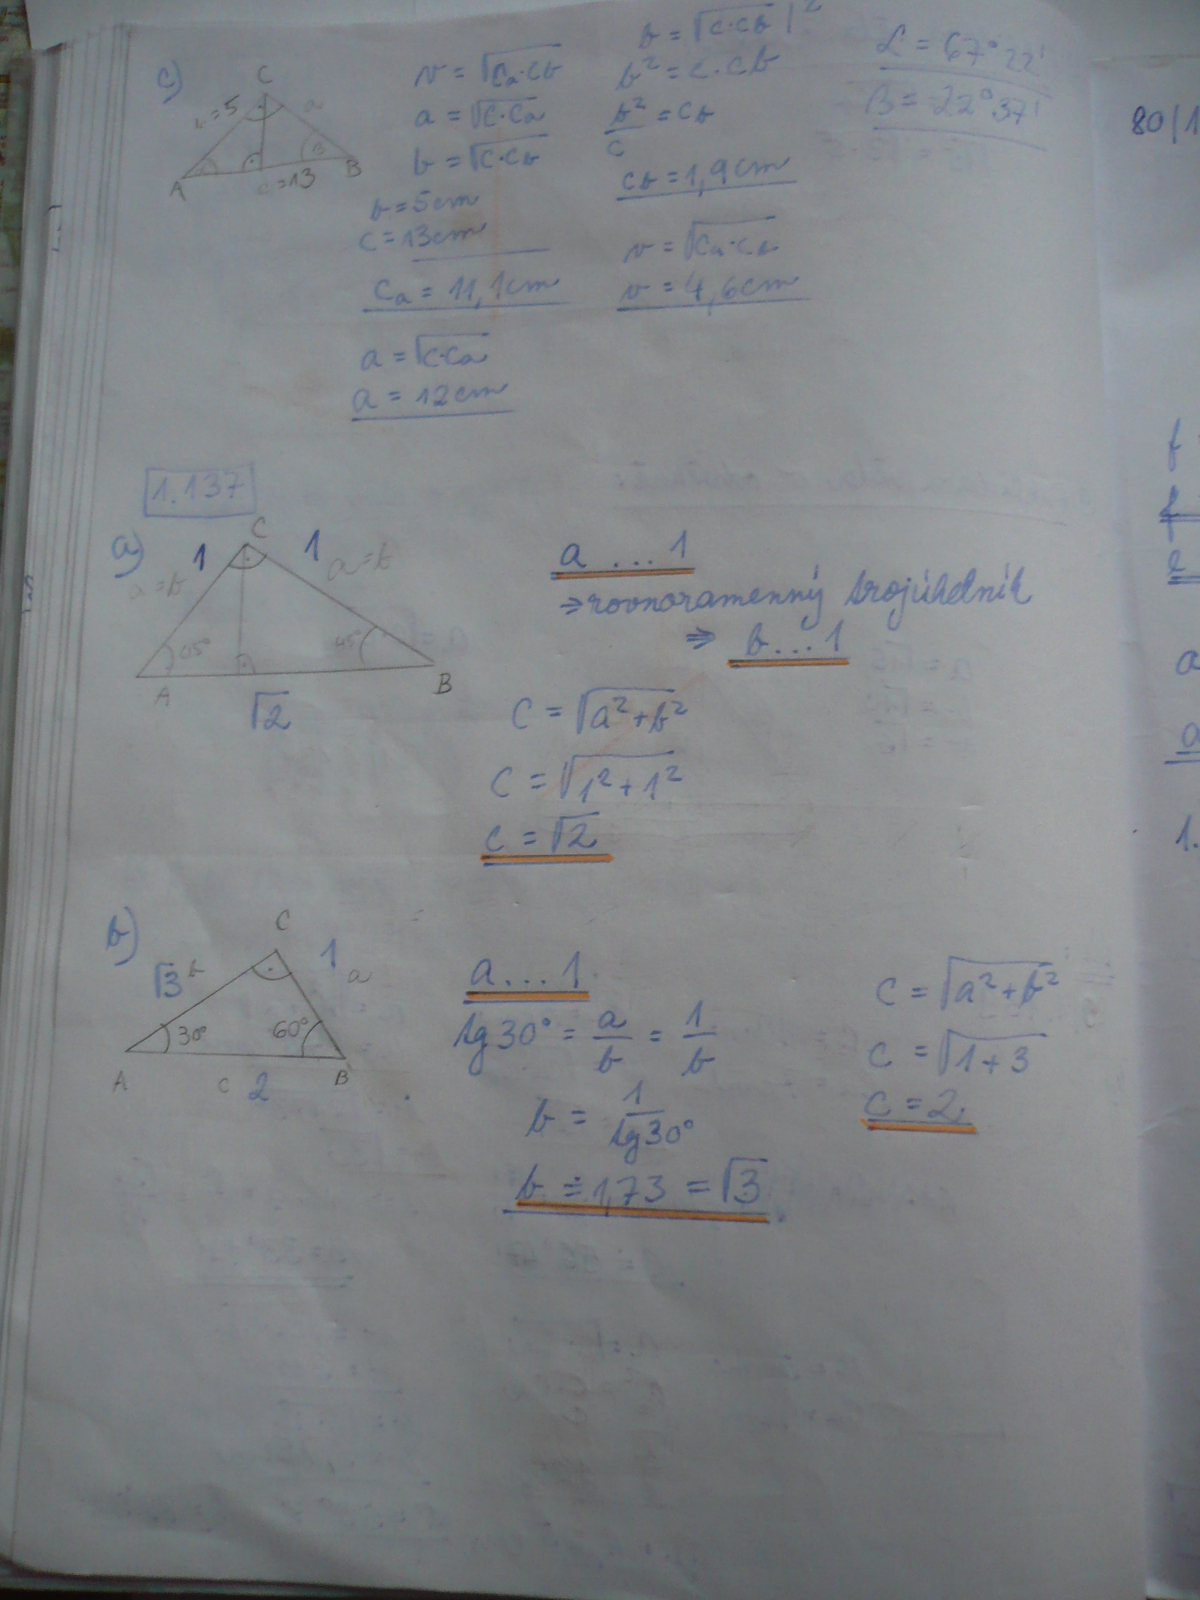 c)
C
b=5
a
A
B
c=13
v = √ca·cb
a = √c·ca
b = √c·cb
b = 5cm
c = 13cm
ca = 11,1cm
a = √c·ca
a = 12cm
b = √c·cb |²
b² = c·cb
b²/c = cb
cb = 1,9cm
v = √ca·cb
v = 4,6cm
α = 67°22'
β = 22°37'
80/1
1.137
a)
C
1
1
a=b
a=b
45°
45°
A
B
√2
a ... 1
⇒ rovnoramenný trojúhelník
⇒ b ... 1
c = √a²+b²
c = √1²+1²
c = √2
b)
C
√3 b
1
a
30°
60°
A
B
c
2
a ... 1
tg30° = a/b = 1/b
b = 1/tg30°
b ≐ 1,73 = √3
c = √a²+b²
c = √1+3
c = 2
a
a
1.